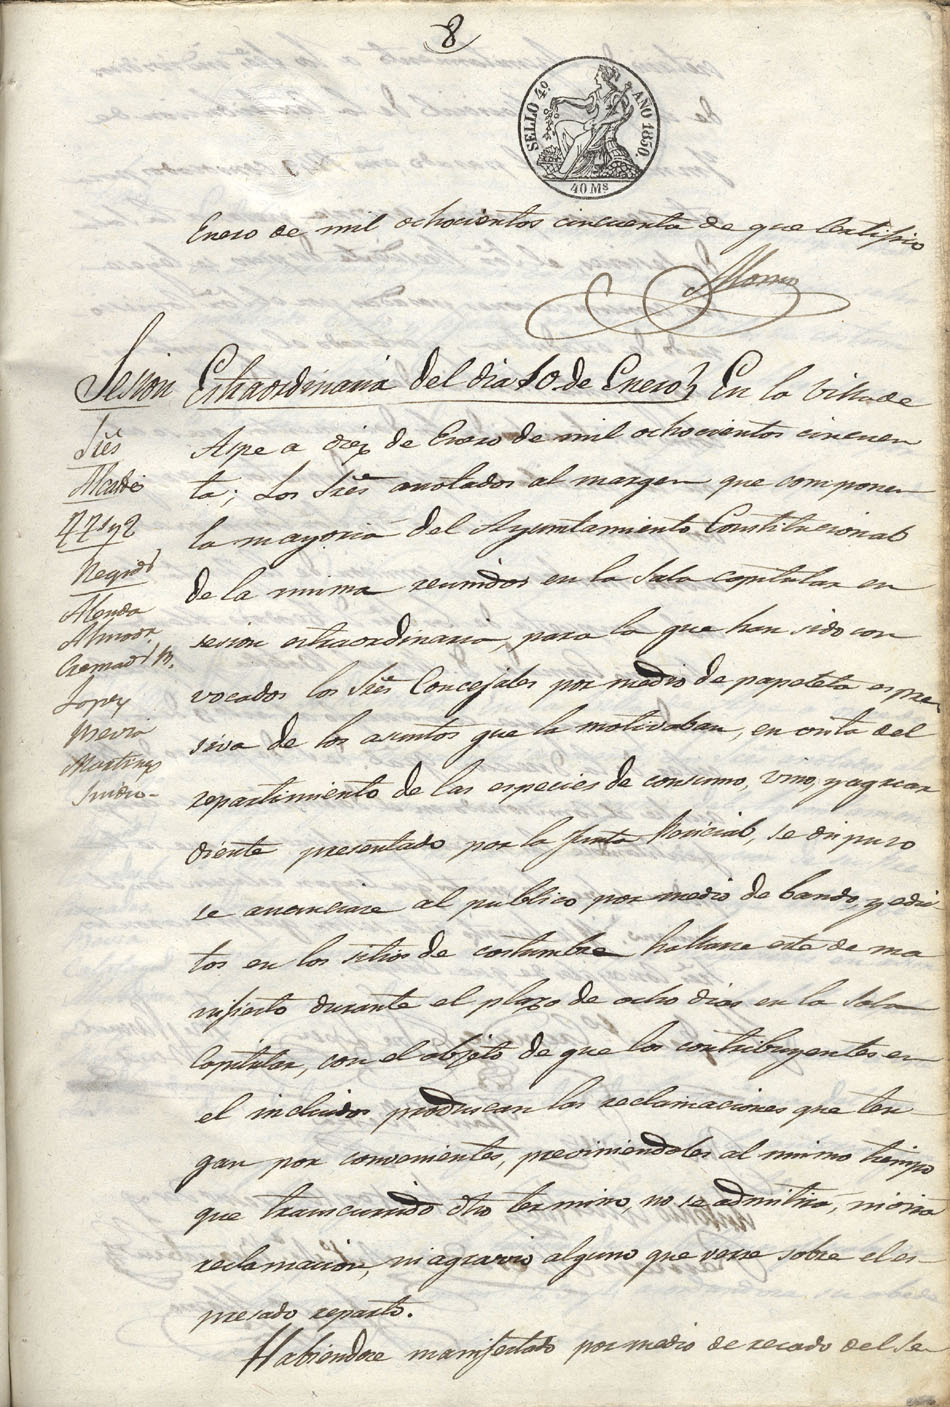 8
SELLO 4º AÑO 1850.
40 Ms
Enero de mil ochocientos cincuenta de que Certifico
Alonso
Sesion Estraordinaria del dia 10 de Enero} En la Villa de
Sres
Alcade
1º y 2º
Regids
Alenda
Almodr
Cremads M.
Lopez
Mexia
Martinez
Sindico
Aspe a diez de Enero de mil ochocientos cincuen
ta; Los Sres anotados al margen que componen
la mayoria del Ayuntamiento Constitucional
de la misma reunidos en la Sala capitular en
sesion estraordinaria, para la que han sido con
vocados los Sres Concejales por medio de papeleta espre
siva de los asuntos que la motivaban, en vista del
repartimiento de las especies de consumo, vino, y aguar
diente presentado por la Junta Pericial, se dispuso
se anunciare al publico por medio de bando, y edic
tos en los sitios de costumbre hallarse este de ma
nifiesto durante el plazo de ocho dias en la Sala
Capitular, con el objeto de que los contribuyentes en
el incluidos produscan las reclamaciones que ten
gan por convenientes, previniendoles al mismo tiempo
que transcurrido dho termino, no se admitira, ni oira
reclamacion, ni agravio alguno que verse sobre el es-
presado reparto.
Habiendose manifestado por medio de recado del Se